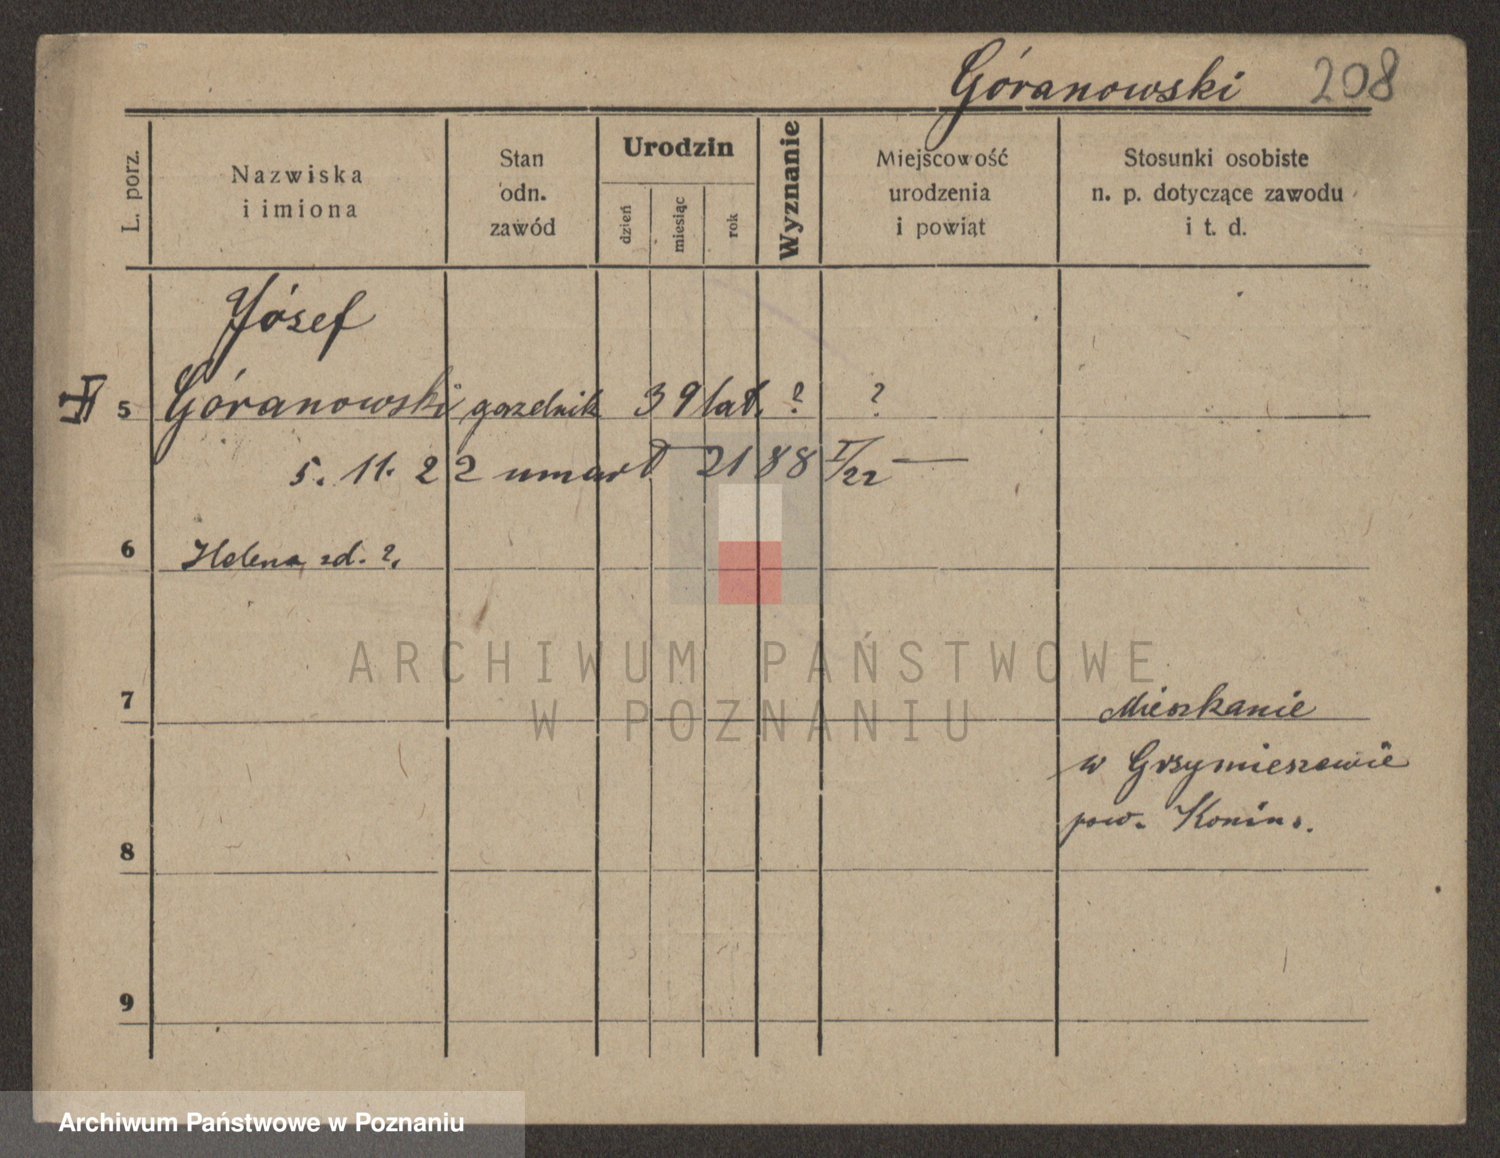 Góranowski 208
L. porz.
Nazwiska
i imiona
Stan
odn.
zawód
Urodzin
dzień
miesiąc
rok
Wyznanie
Miejscowość
urodzenia
i powiąt
Stosunki osobiste
n. p. dotyczące zawodu
i t. d.
Józef
5 Góranowski gorzelnik 39 lat. ? ?
5. 11. 22 umarł 2188 I/22 —
6 Helena zd. ?.
ARCHIWUM PAŃSTWOWE
W POZNANIU
7 Mieszkanie
w Grzymiszewie
pow. Konin.
8
9
Archiwum Państwowe w Poznaniu